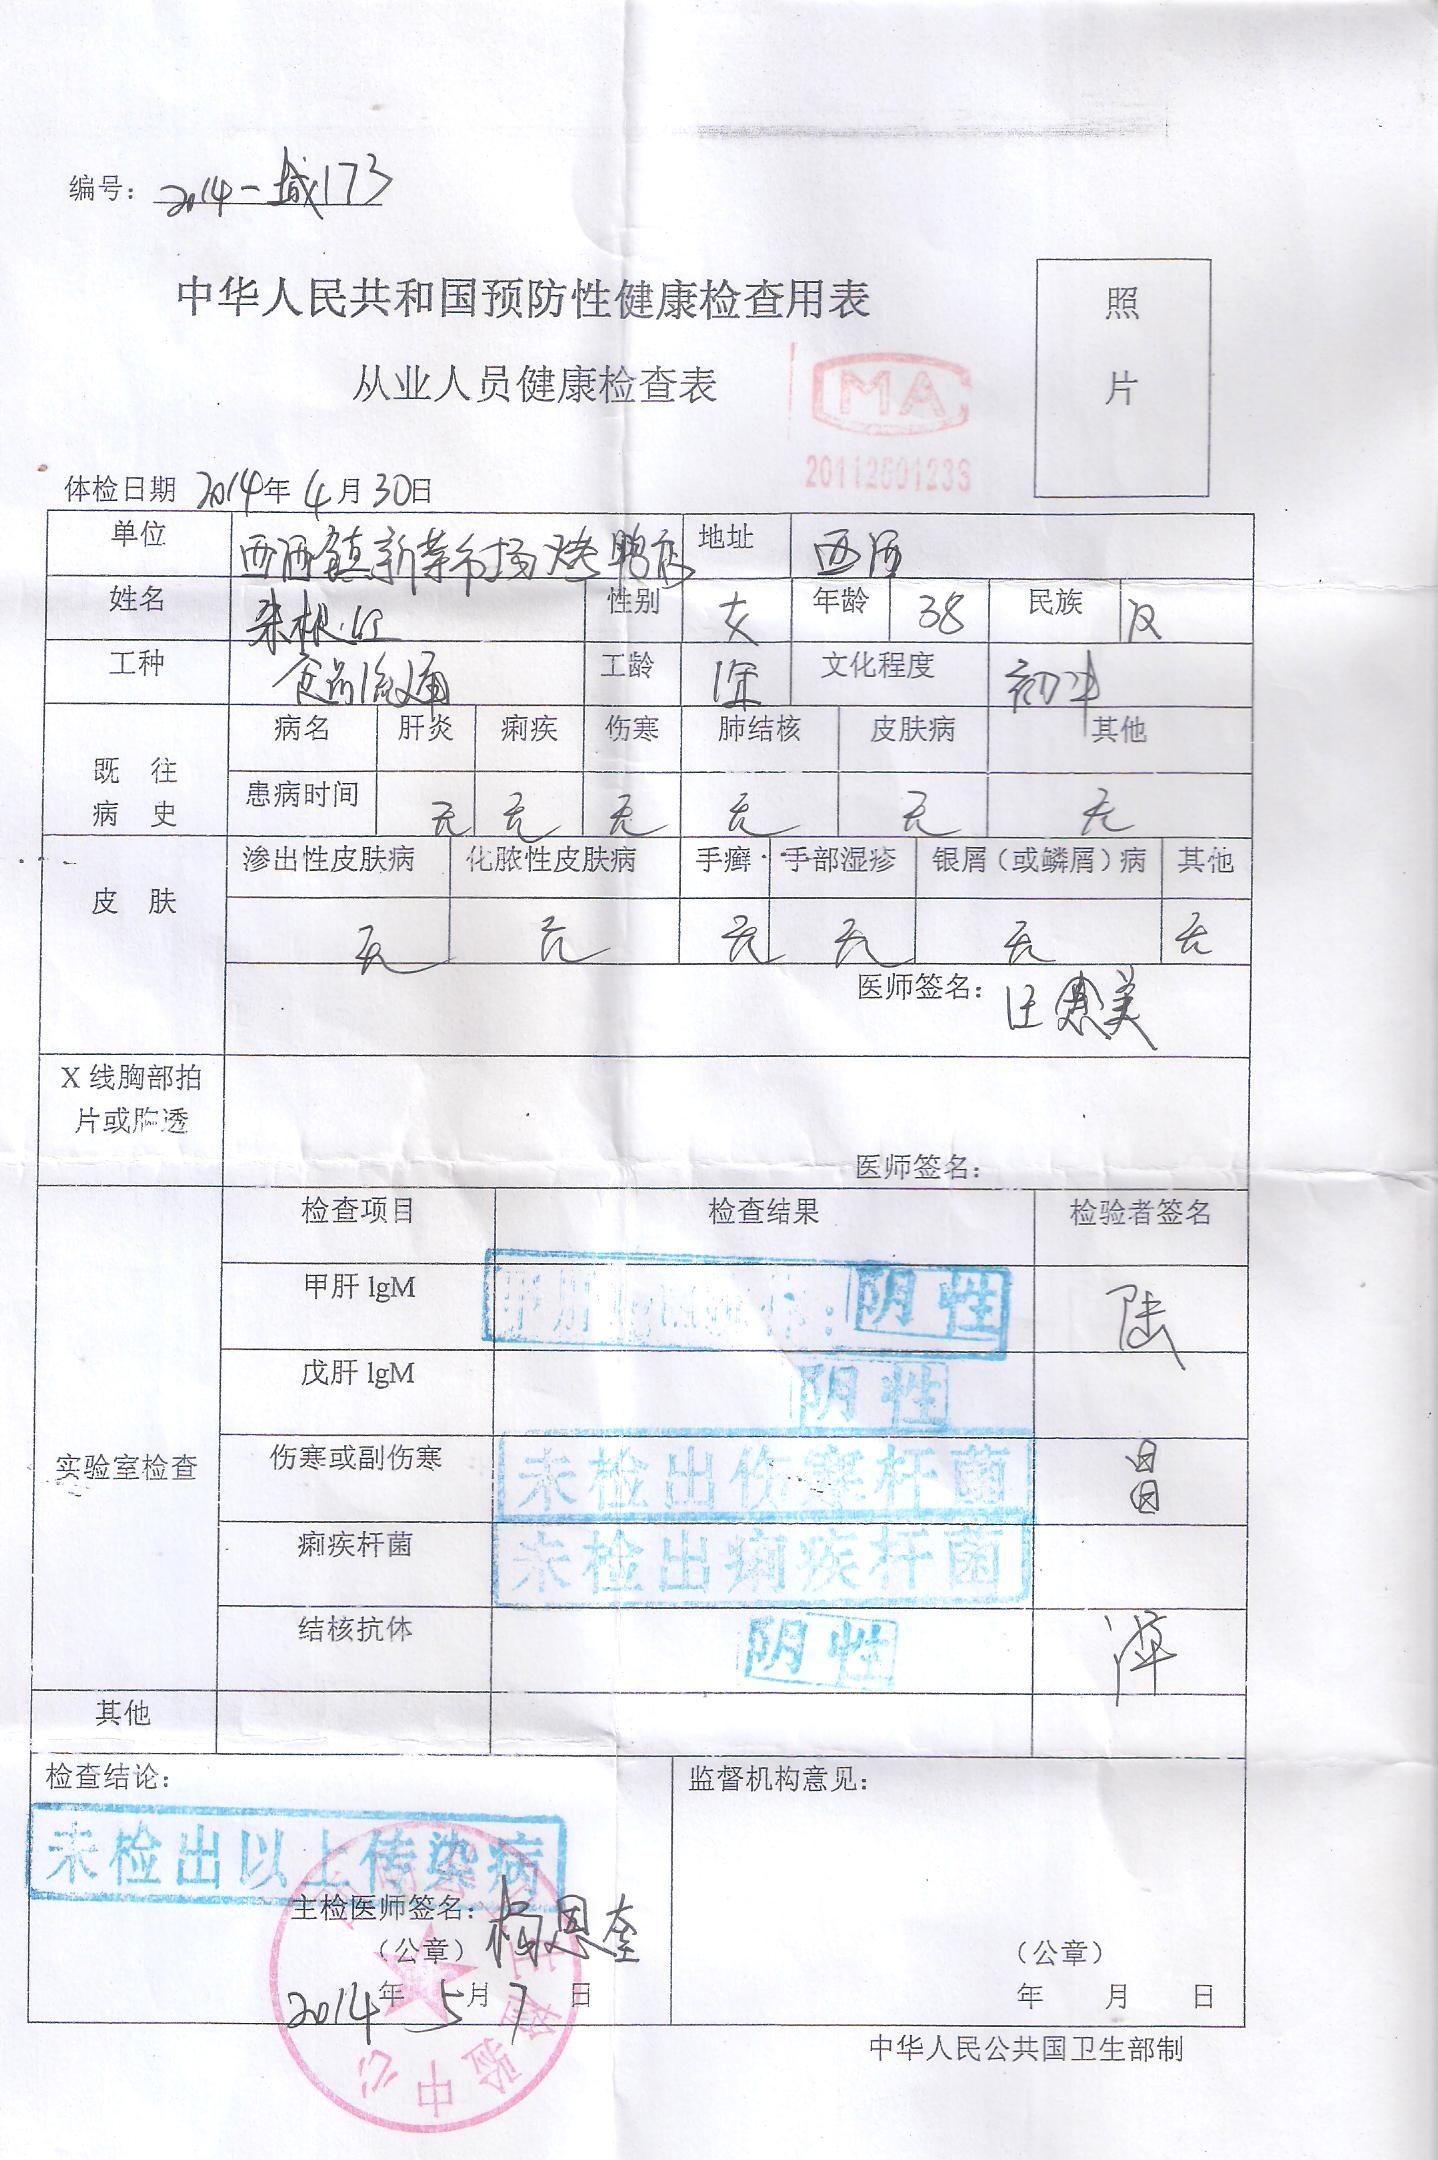 编号：2014-城173
中华人民共和国预防性健康检查用表
照
片
从业人员健康检查表
MA
2011260123S
体检日期 2014年 4月 30日
单位 西洒镇新菜市场烤鸭店 地址 西洒
姓名 性别 女 年龄 38 民族 汉
工种 食品流通 工龄 文化程度 初中
既往 病名 肝炎 痢疾 伤寒 肺结核 皮肤病 其他
病史 患病时间 无 无 无 无 无 无
皮肤 渗出性皮肤病 化脓性皮肤病 手癣 手部湿疹 银屑（或鳞屑）病 其他
无 无 无 无 无 无
医师签名：汪惠美
X 线胸部拍
片或胸透
医师签名：
实验室检查 检查项目 检查结果 检验者签名
甲肝 lgM 阴性 陆
戊肝 lgM 阴性
伤寒或副伤寒 未检出伤寒杆菌
痢疾杆菌 未检出痢疾杆菌
结核抗体 阴性
其他
检查结论： 监督机构意见：
未检出以上传染病
主检医师签名：杨恩奎
（公章） （公章）
2014年 5月 7日 年 月 日
检验中心
中华人民公共国卫生部制